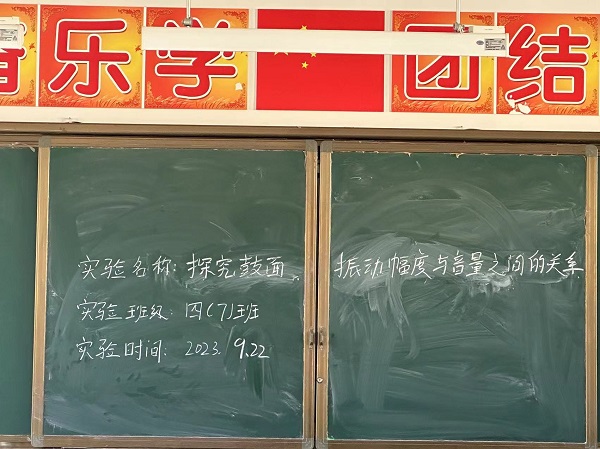 乐学 团结
实验名称：探究鼓面振动幅度与音量之间的关系
实验班级：四（7）班
实验时间：2023.9.22